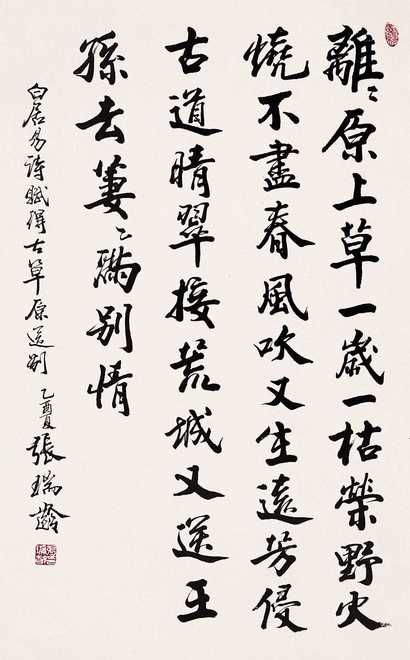 離〻原上草一歲一枯榮野火
燒不盡春風吹又生遠芳侵
古道晴翠接荒城又送王
孫去萋〻滿別情
白居易詩賦得古草原送別 乙酉夏 張瑞齡